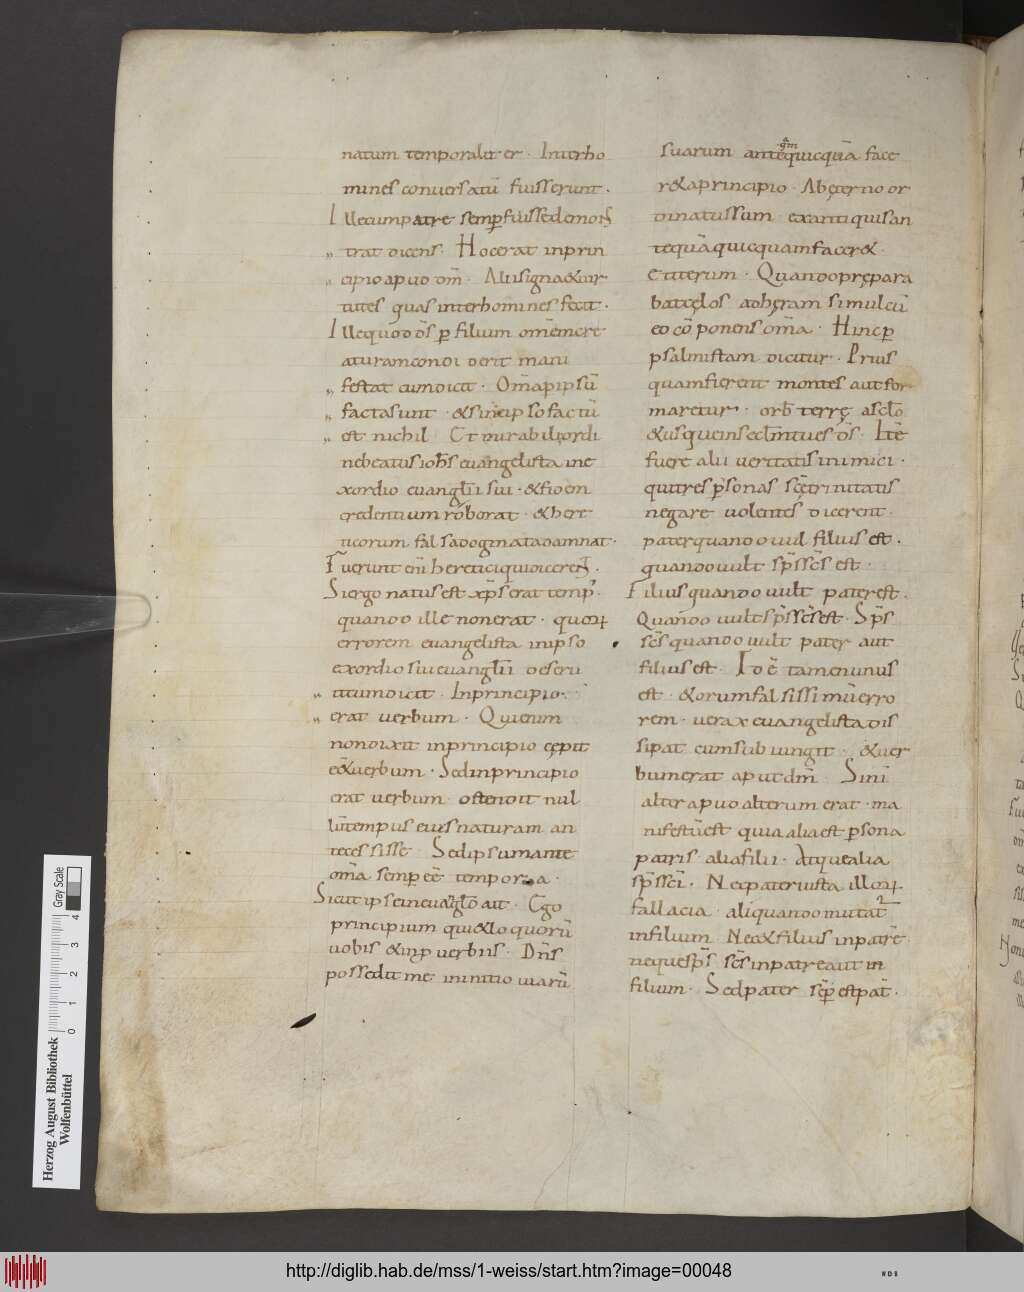 natum temporalit er · Interho
mines conuersatū fuisse runt ·
Illecumpatre semp fuisse demons
trat dicens · Hocerat inprin
cipio apud dm̄ · Alii signa & uir
tutes quas inter homines fecit ·
Ille quod d̄s p filium omēm cre
aturam condi derit mani
festat cum dicit · Om̄a p ipsū
facta sunt · & sine ipso factū
est nichil Et mirabili ordi
ne beatus ioh̄s euangelista in e
xordio euanglii sui · & fidem
credentium roborat · & here
ticorum falsa dogmata damnat ·
Fuerunt eni heretici qui dicerent
Si ergo natus est xp̄s erat temp'
quando ille non erat · quorum
errorem euangelista in ipso
exordio sui euanglii deseru
it cum dicit · Inprincipio
erat uerbum · Qui enim
non dixit inprincipio cępit
e& uerbum · Sed inprincipio
erat uerbum ostendit nul
lū tempus eius naturam an
tecessisse Sed ipsum ante
om̄a semp eē tempora ·
Sicut ipse in euanglo ait · Ego
principium qui & loquorū
uobis & inp uerbiis · Dn̄s
possedit me in initio uiarū
suarum antequicquā face
agm
r& aprincipio · Ab ęterno or
dinatus sum ex antiquis an
tequā quicquam facer&
& iterum · Quando prępara
bat cęlos aderam simul cū
eo cōponens om̄a · Hinc p
psalmistam dicitur · Prius
quam fierent montes aut for
maretur · orb' terrę asclo
& usque in sclm tu es d̄s · Itē
fuere alii ueritatis inimici ·
qui tres psonas scę trinitatis
negare uolentes dicerent
pater quando uul filius est ·
quando uult sp̄s scs est ·
Filius quando uult pater est ·
Quando uult sp̄s scs est · Sp̄s
scs quando uult pater aut
filius est Id ē tamen unus
est · & orum falsissimū erro
rem · uerax euangelista dis
sipat cum sub iungit · & uer
bum erat aput dm̄ Sin̄
alter apud alterum erat · ma
nifestū est quia alia est psona
patris alia filii · Atque alia
sp̄s sci · Nec pater iuxta illorum
fallacia aliquando mutat'
in filium Nec & filius in patrē
neque sp̄s scs in patre aut in
filium · Sed pater sēp est pat' ·
Herzog August Bibliothek
Wolfenbüttel
Gray Scale
0 1 2 3 4
http://diglib.hab.de/mss/1-weiss/start.htm?image=00048